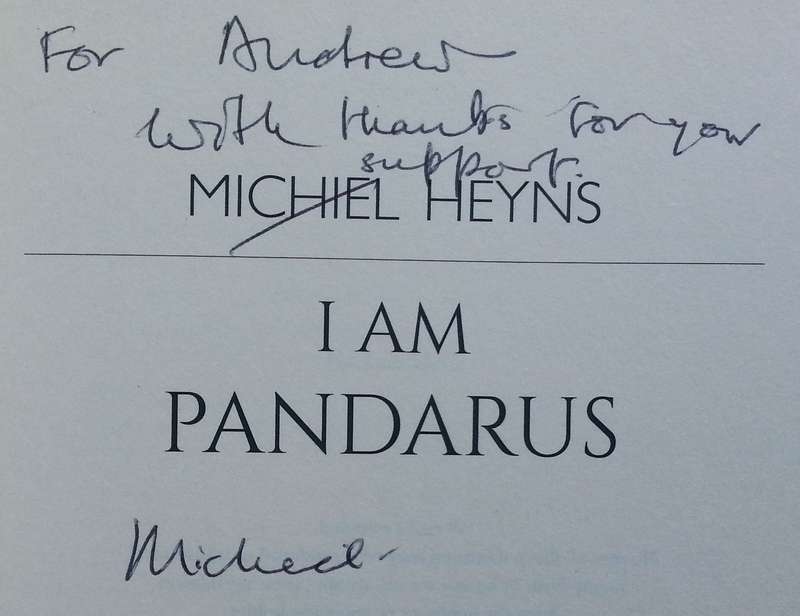 For Andrew
with thanks for your
support.
MICHIEL HEYNS
I AM
PANDARUS
Michiel